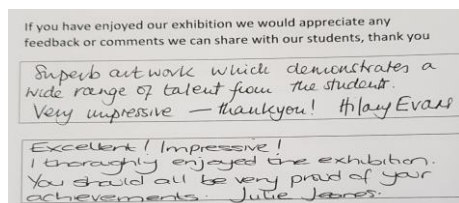 If you have enjoyed our exhibition we would appreciate any
feedback or comments we can share with our students, thank you
Superb art work which demonstrates a
wide range of talent from the students.
Very impressive — thankyou! Hilary Evans
Excellent! Impressive!
I thoroughly enjoyed the exhibition.
You should all be very proud of your
achievements. Julie